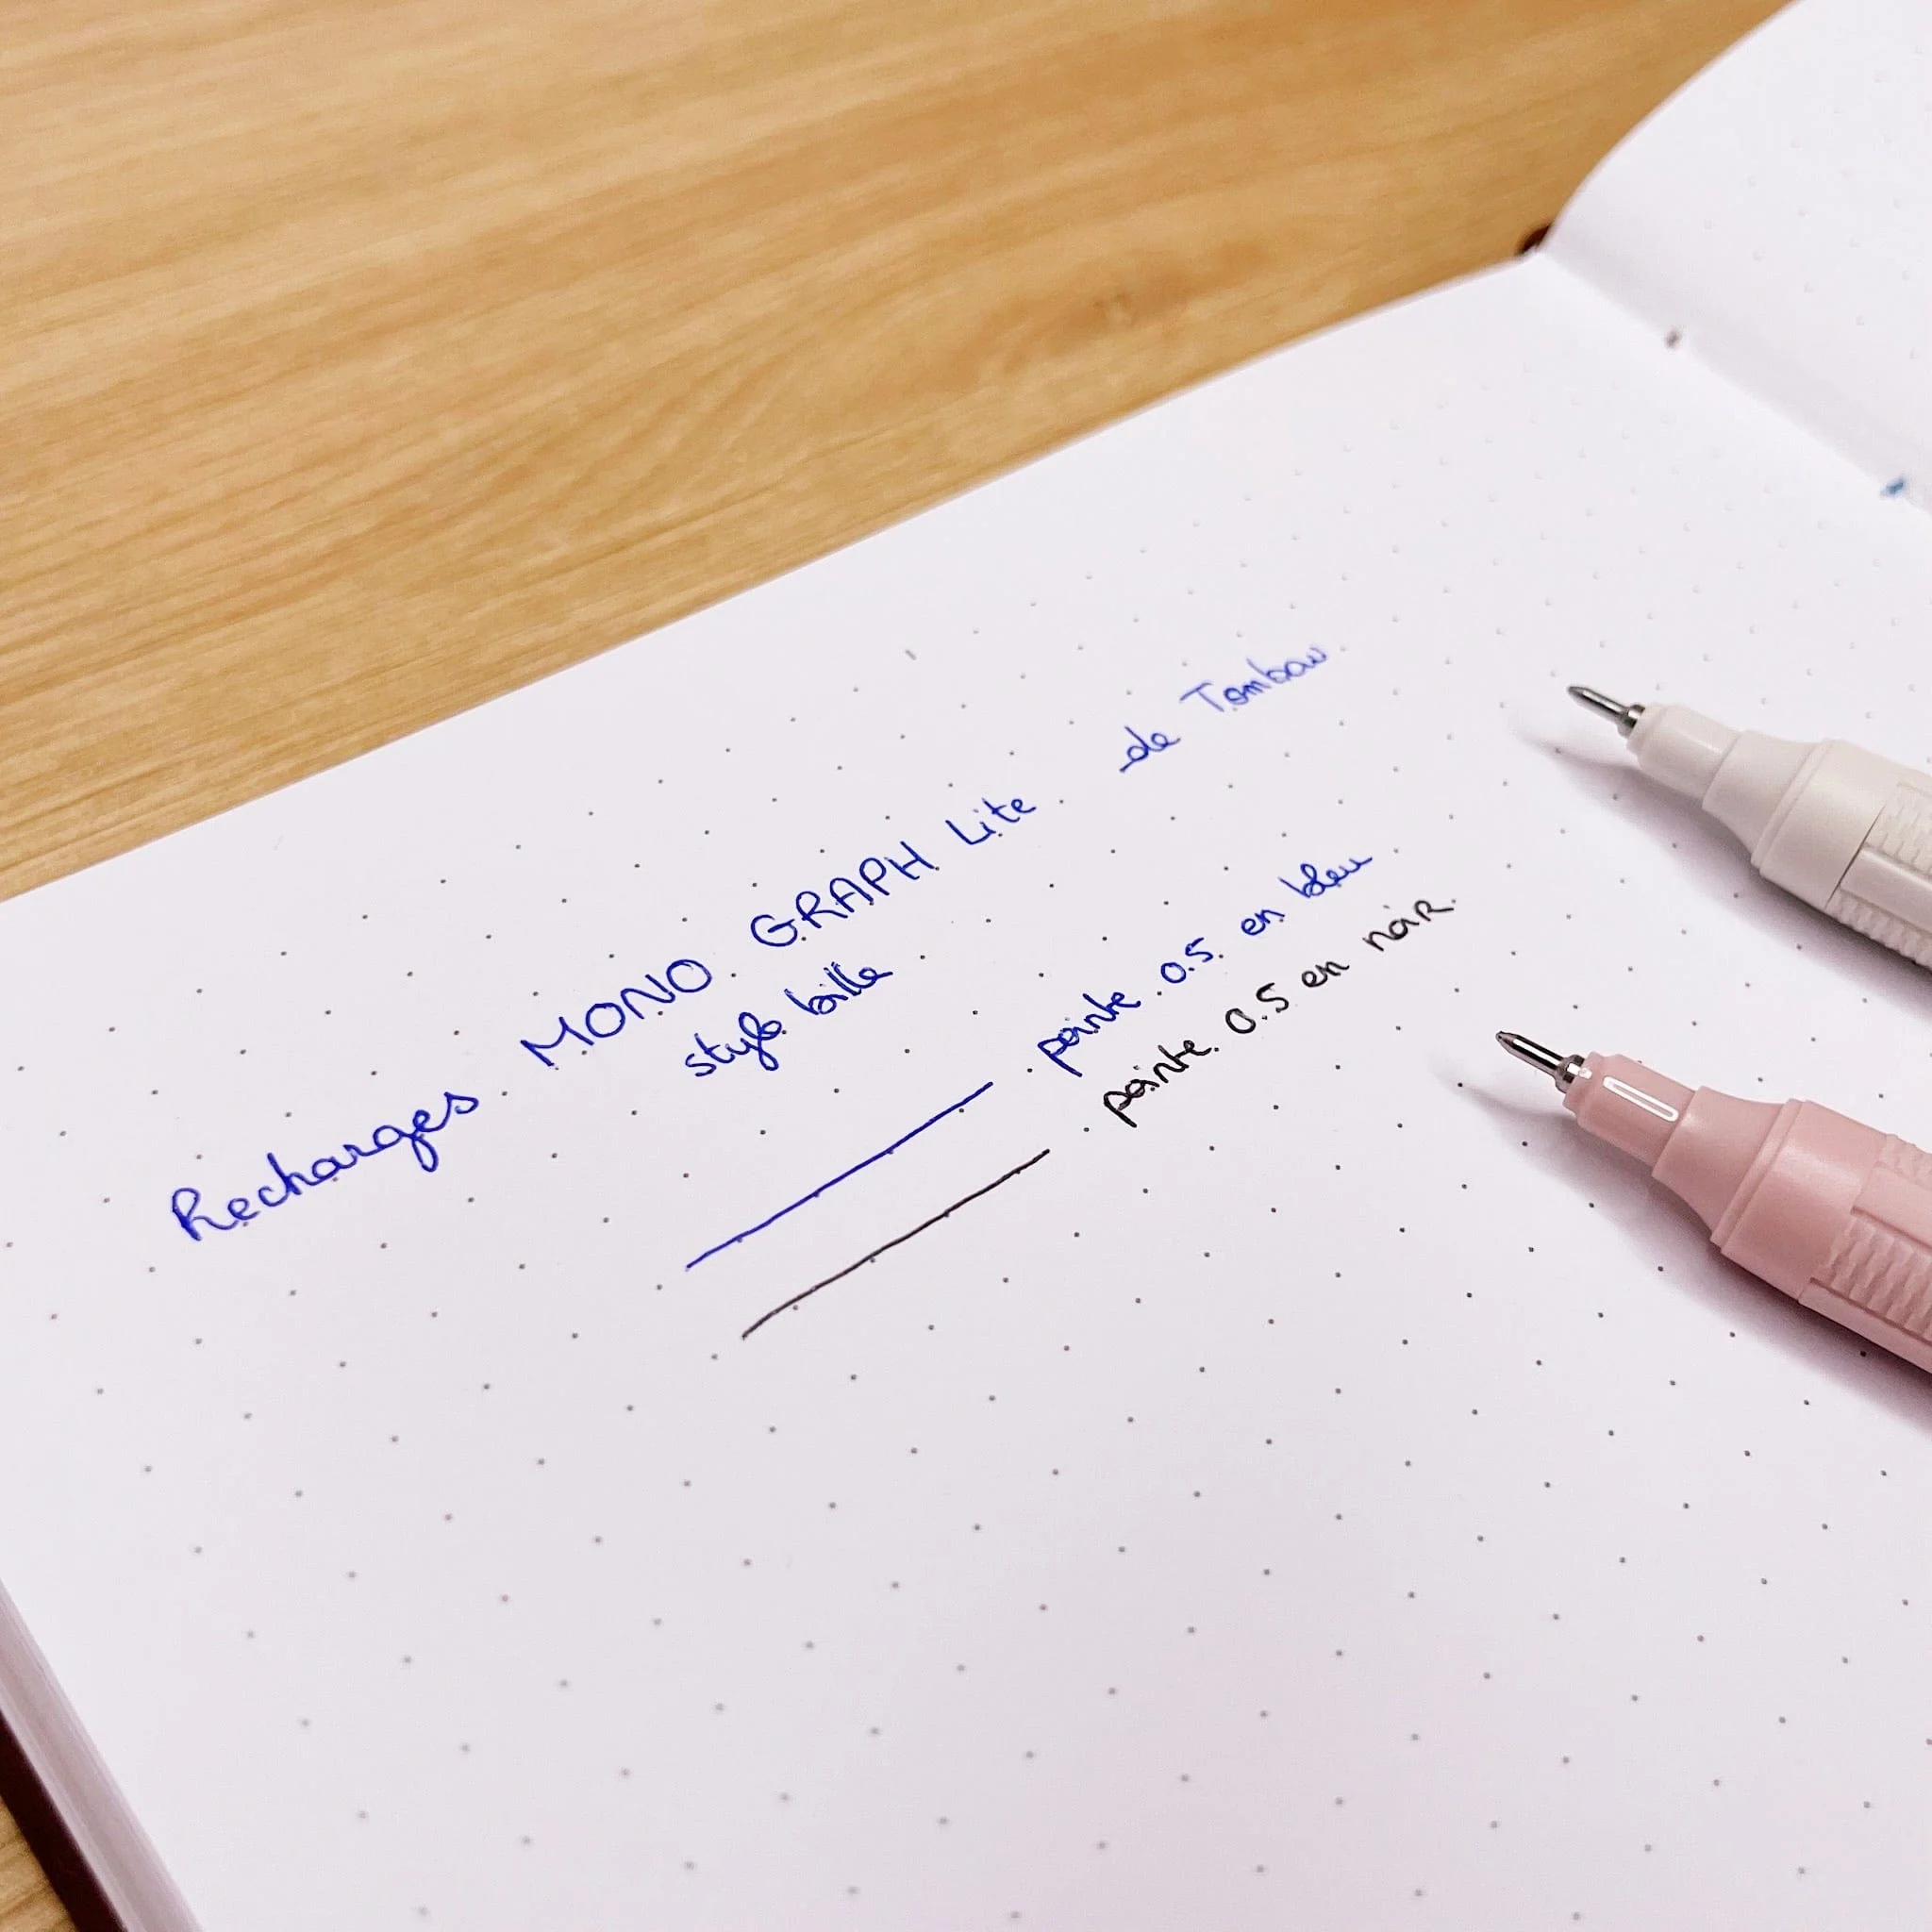 Recharges MONO GRAPH Lite de Tombow
stylo bille
pointe 0.5 en bleu
pointe 0.5 en noir